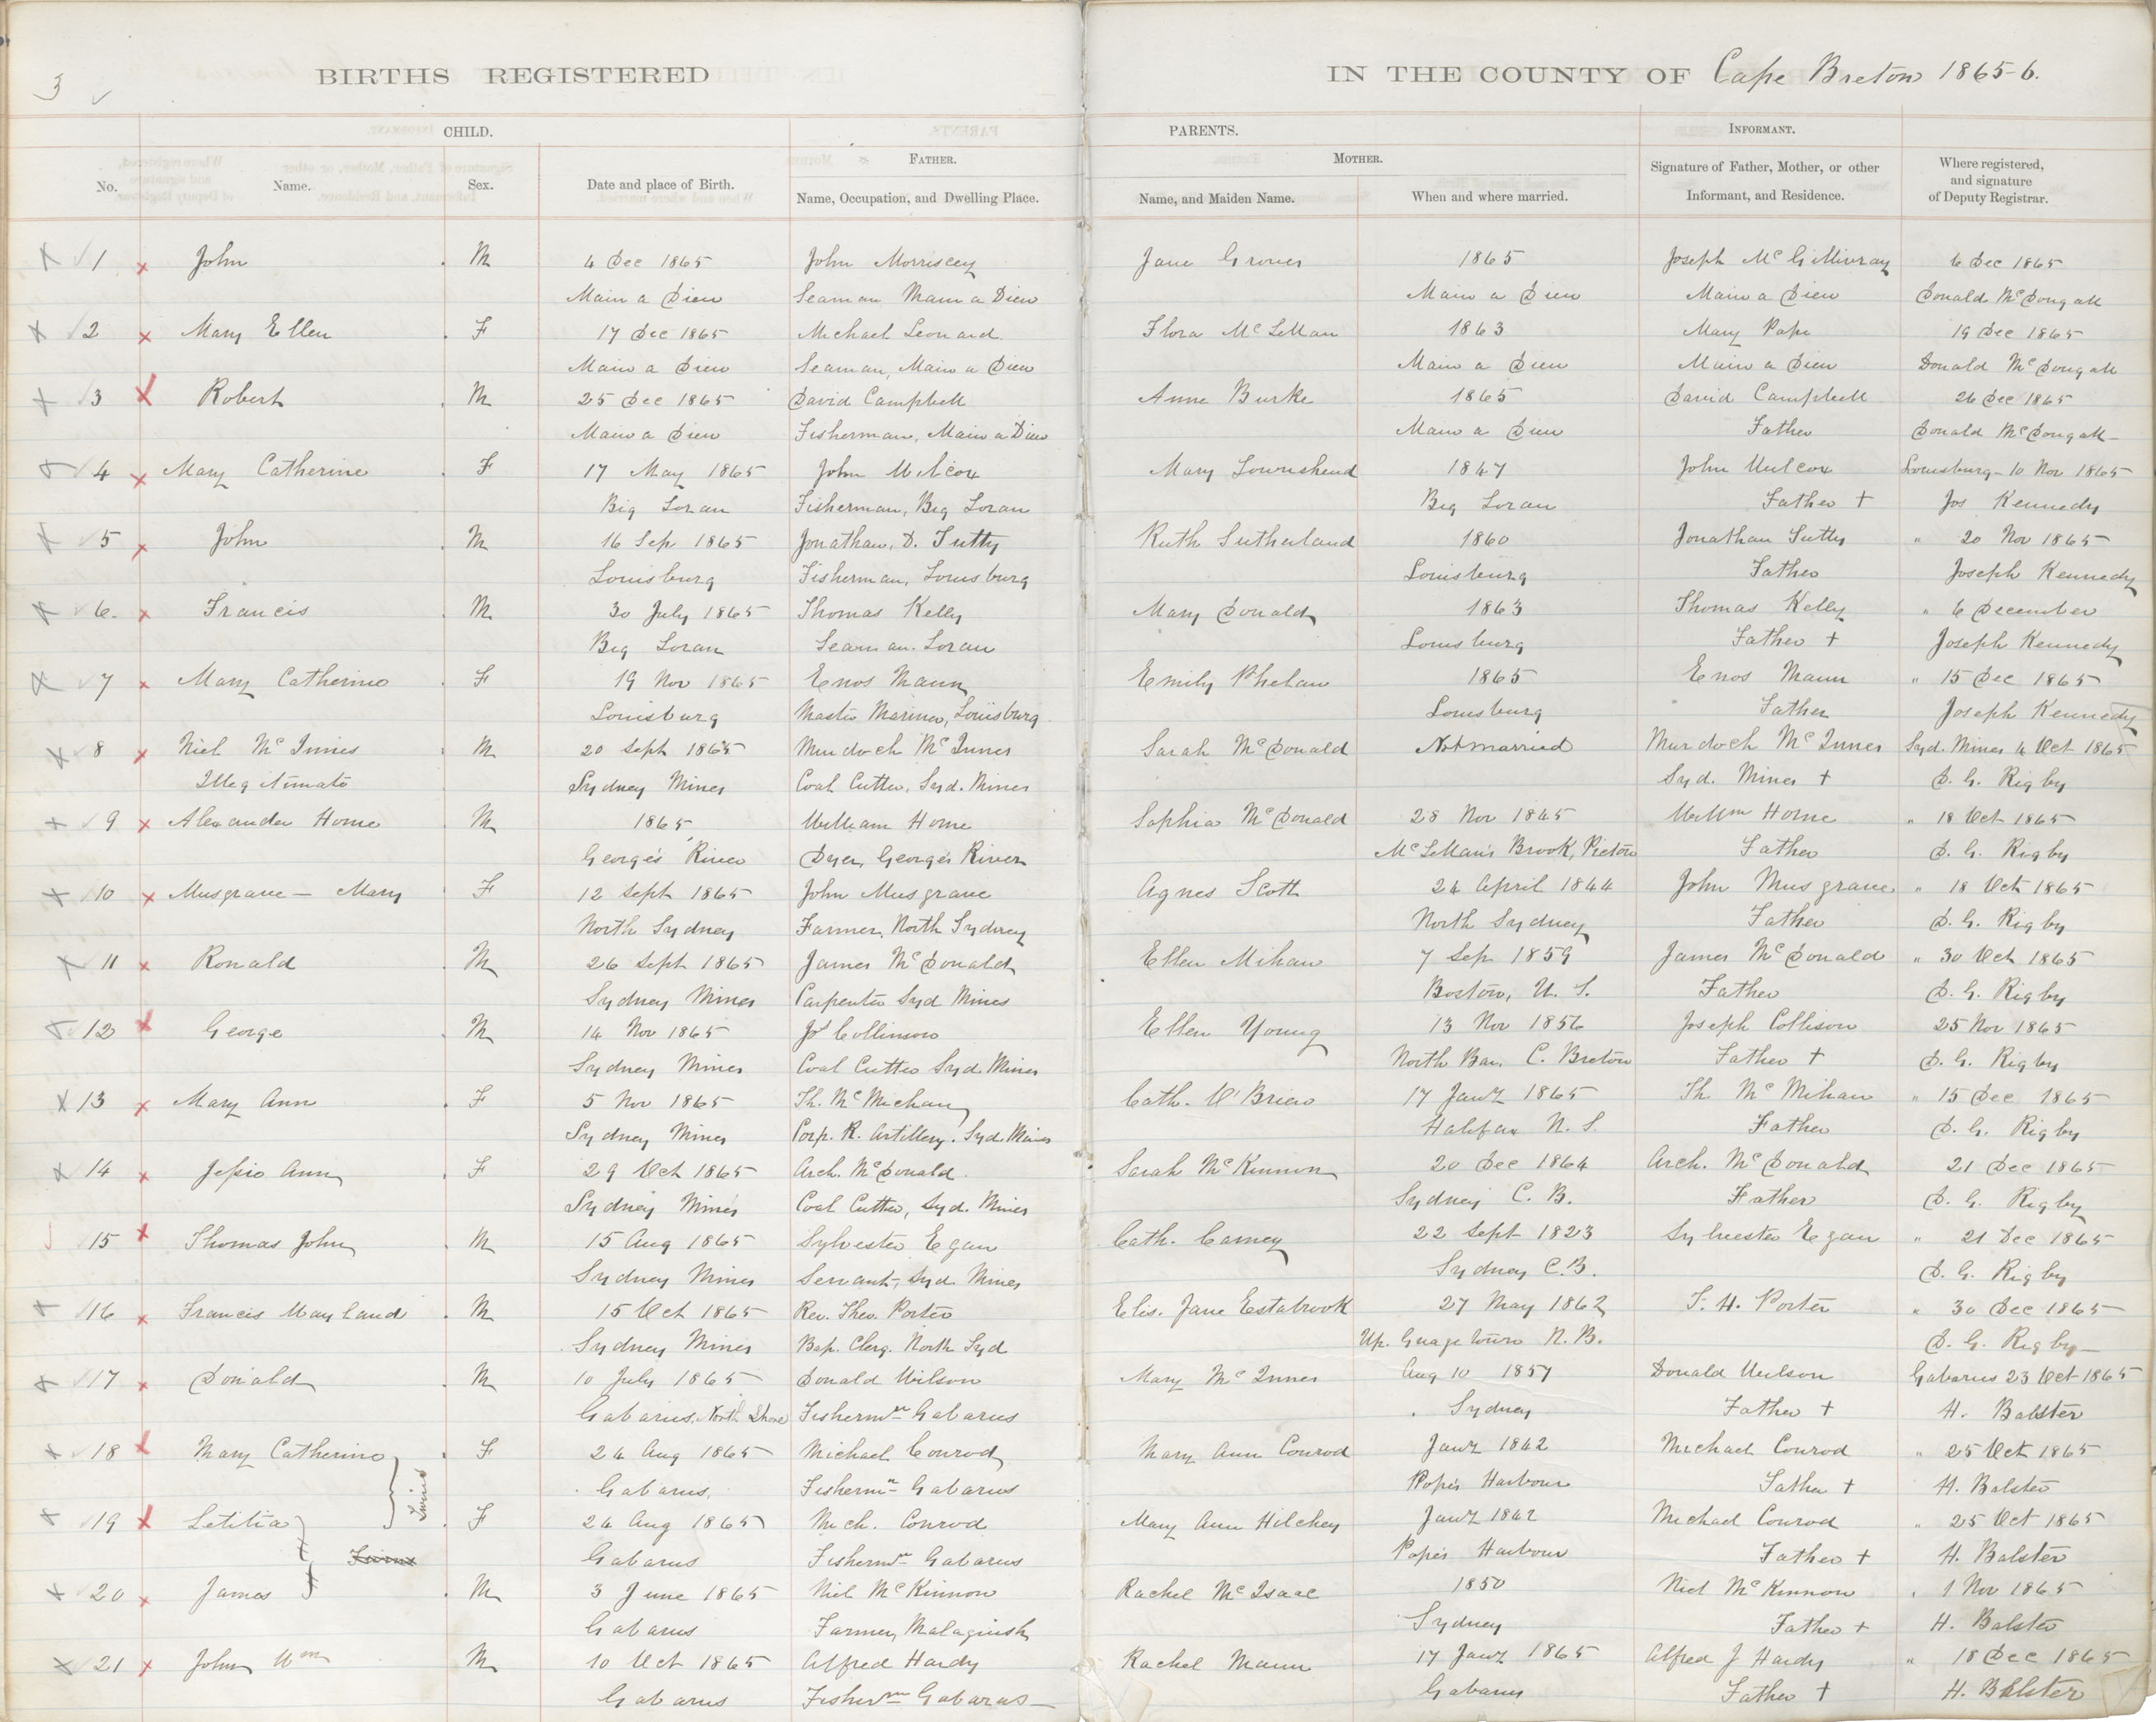 3
BIRTHS REGISTERED IN THE COUNTY OF Cape Breton 1865-6.
CHILD. PARENTS. INFORMANT.
FATHER. MOTHER.
No. Name. Sex. Date and place of Birth. Name, Occupation, and Dwelling Place. Name, and Maiden Name. When and where married. Signature of Father, Mother, or other Informant, and Residence. Where registered, and signature of Deputy Registrar.
1 John M 4 Dec 1865 John Morriscey Jane Groves 1865 Joseph McGillivray 6 Dec 1865
Main a Dieu Seaman Main a Dieu Main a Dieu Main a Dieu Donald McDougall
2 Mary Ellen F 17 Dec 1865 Michael Leonard Flora McLellan 1863 Mary Pope 19 Dec 1865
Main a Dieu Seaman, Main a Dieu Main a Dieu Main a Dieu Donald McDougall
3 Robert M 25 Dec 1865 David Campbell Anne Burke 1865 David Campbell 26 Dec 1865
Main a Dieu Fisherman, Main a Dieu Main a Dieu Father Donald McDougall
4 Mary Catherine F 17 May 1865 John Wilcox Mary Townshend 1847 John Wilcox Louisburg 10 Nov 1865
Big Loran Fisherman, Big Loran Big Loran Father + Jos Kennedy
5 John M 16 Sep 1865 Jonathan, D. Tutty Ruth Sutherland 1860 Jonathan Tutty " 20 Nov 1865
Louisburg Fisherman, Louisburg Louisburg Father Joseph Kennedy
6 Francis M 30 July 1865 Thomas Kelly Mary Donald 1863 Thomas Kelly " 6 December
Big Loran Seaman. Loran Louisburg Father + Joseph Kennedy
7 Mary Catherine F 19 Nov 1865 Enos Mann Emily Phelan 1865 Enos Mann " 15 Dec 1865
Louisburg Master Mariner, Louisburg Louisburg Father Joseph Kennedy
8 Niel McInnis M 20 Sept 1865 Murdoch McInnes Sarah McDonald Not married Murdoch McInnes Syd. Mines 4 Oct 1865
Illegitimate Sydney Mines Coal Cutter, Syd. Mines Syd. Mines + D. G. Rigby
9 Alexander Horne M 1865 William Horne Sophia McDonald 28 Nov 1845 Willm Horne " 18 Oct 1865
George's River Dyer, George's River McLellan's Brook, Pictou Father D. G. Rigby
10 Musgrave - Mary F 12 Sept 1865 John Musgrave Agnes Scott 24 April 1844 John Musgrave " 18 Oct 1865
North Sydney Farmer, North Sydney North Sydney Father D. G. Rigby
11 Ronald M 26 Sept 1865 James McDonald Ellen Mihan 7 Sep 1859 James McDonald " 30 Oct 1865
Sydney Mines Carpenter Syd Mines Boston, U. S. Father D. G. Rigby
12 George M 14 Nov 1865 Jos Collinson Ellen Young 13 Nov 1856 Joseph Collison 25 Nov 1865
Sydney Mines Coal Cutter Syd. Mines North Bar, C. Breton Father + D. G. Rigby
13 Mary Ann F 5 Nov 1865 Th. McMechan Cath. O'Brien 17 Jany 1865 Th McMihan " 15 Dec 1865
Sydney Mines Corp. R. Artillery. Syd. Mines Halifax N. S. Father D. G. Rigby
14 Jessie Ann F 29 Oct 1865 Arch. McDonald Sarah McKinnon 20 Dec 1864 Arch. McDonald 21 Dec 1865
Sydney Mines Coal Cutter, Syd. Mines Sydney C. B. Father D. G. Rigby
15 Thomas John M 15 Aug 1865 Sylvester Egan Cath. Carney 22 Sept 1823 Sylvester Egan " 21 Dec 1865
Sydney Mines Servant, Syd. Mines Sydney C.B. D. G. Rigby
16 Francis Mayland M 15 Oct 1865 Rev. Theo. Porter Elis. Jane Estabrook 27 May 1862 T. H. Porter " 30 Dec 1865
Sydney Mines Bap. Clerg. North Syd Up. Guagetown N. B. D. G. Rigby
17 Donald M 10 July 1865 Donald Wilson Mary McInnes Aug 10 1857 Donald Wilson Gabarus 23 Oct 1865
Gabarus, North Shore Fishermn Gabarus Sydney Father + H. Balster
18 Mary Catherine F 24 Aug 1865 Michael Conrod Mary Ann Conrod Jany 1842 Michael Conrod " 25 Oct 1865
Twins Gabarus, Fishermn Gabarus Pope's Harbour Father + H. Balster
19 Letitia F 24 Aug 1865 Mich. Conrod Mary Ann Hilchey Jany 1842 Michael Conrod " 25 Oct 1865
Twins Gabarus Fishermn Gabarus Pope's Harbour Father + H. Balster
20 James M 3 June 1865 Niel McKinnon Rachel McIsaac 1850 Niel McKinnon " 1 Nov 1865
Gabarus Farmer, Malaguish Sydney Father + H. Balster
21 John Wm M 10 Oct 1865 Alfred Hardy Rachel Mann 17 Jany 1865 Alfred J Hardy " 18 Dec 1865
Gabarus Fishermn Gabarus Gabarus Father + H. Balster